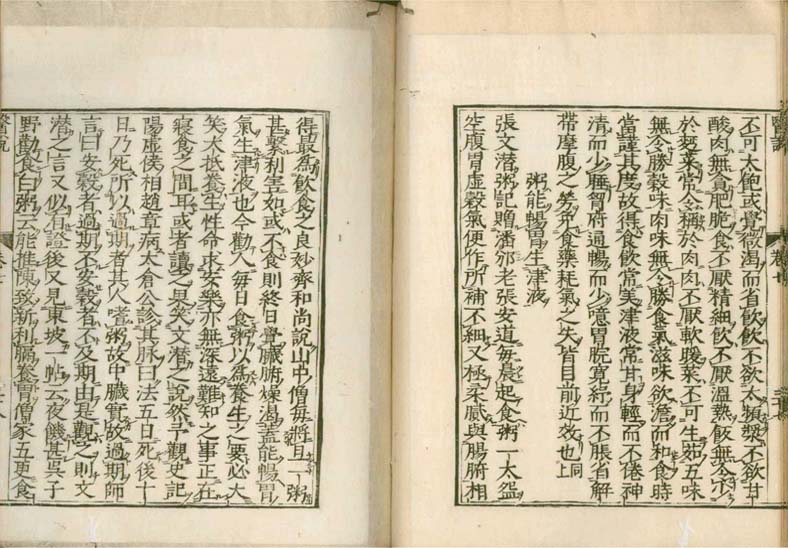 不可太飽或覺微渴而省飲飲不欲太頻漿不欲甘
酸肉無貪肥脆食不厭精細飲不厭溫熟飯無
於麪菜常令稱於肉肉不厭軟暖菜不可生茹五味
無令勝穀味肉味無令勝食氣滋味欲澹而和食時
當謹其度故得食飲常美津液常甘身輕而不倦神
清而少睡智府通暢而少噫胃脘寬紓而不脹省解
帶摩腹之勞免食藥耗氣之失皆目前近效也上同
粥能暢胃生津液
張文潛粥記贈潘邠老張安道每晨起食粥一大盌
空腹胃虛穀氣便作所補不細又極柔膩與腸腑相
醫說
得最為飲食之良妙齊和尚說山中僧每將旦一粥
甚繫利害如或不食則終日覺臟腑燥渴蓋能暢胃
氣生津液也今勸人每日食粥以為養生之要必大
笑大抵養生性命求安樂亦無深遠難知之事正在
寢食之間耳或者讀之果笑文潛之說然予觀史記
陽虛侯相趙章病太倉公診其脉曰法五日死後十
日乃死所以過期者其人嗜粥故中臟實故過期師
言曰安穀者過期不安穀者不及期由是觀之則文
潛之言又似有證後又見東坡一帖云夜饑甚吳子
野勸食白粥云能推陳致新利膈養胃僧家五更食